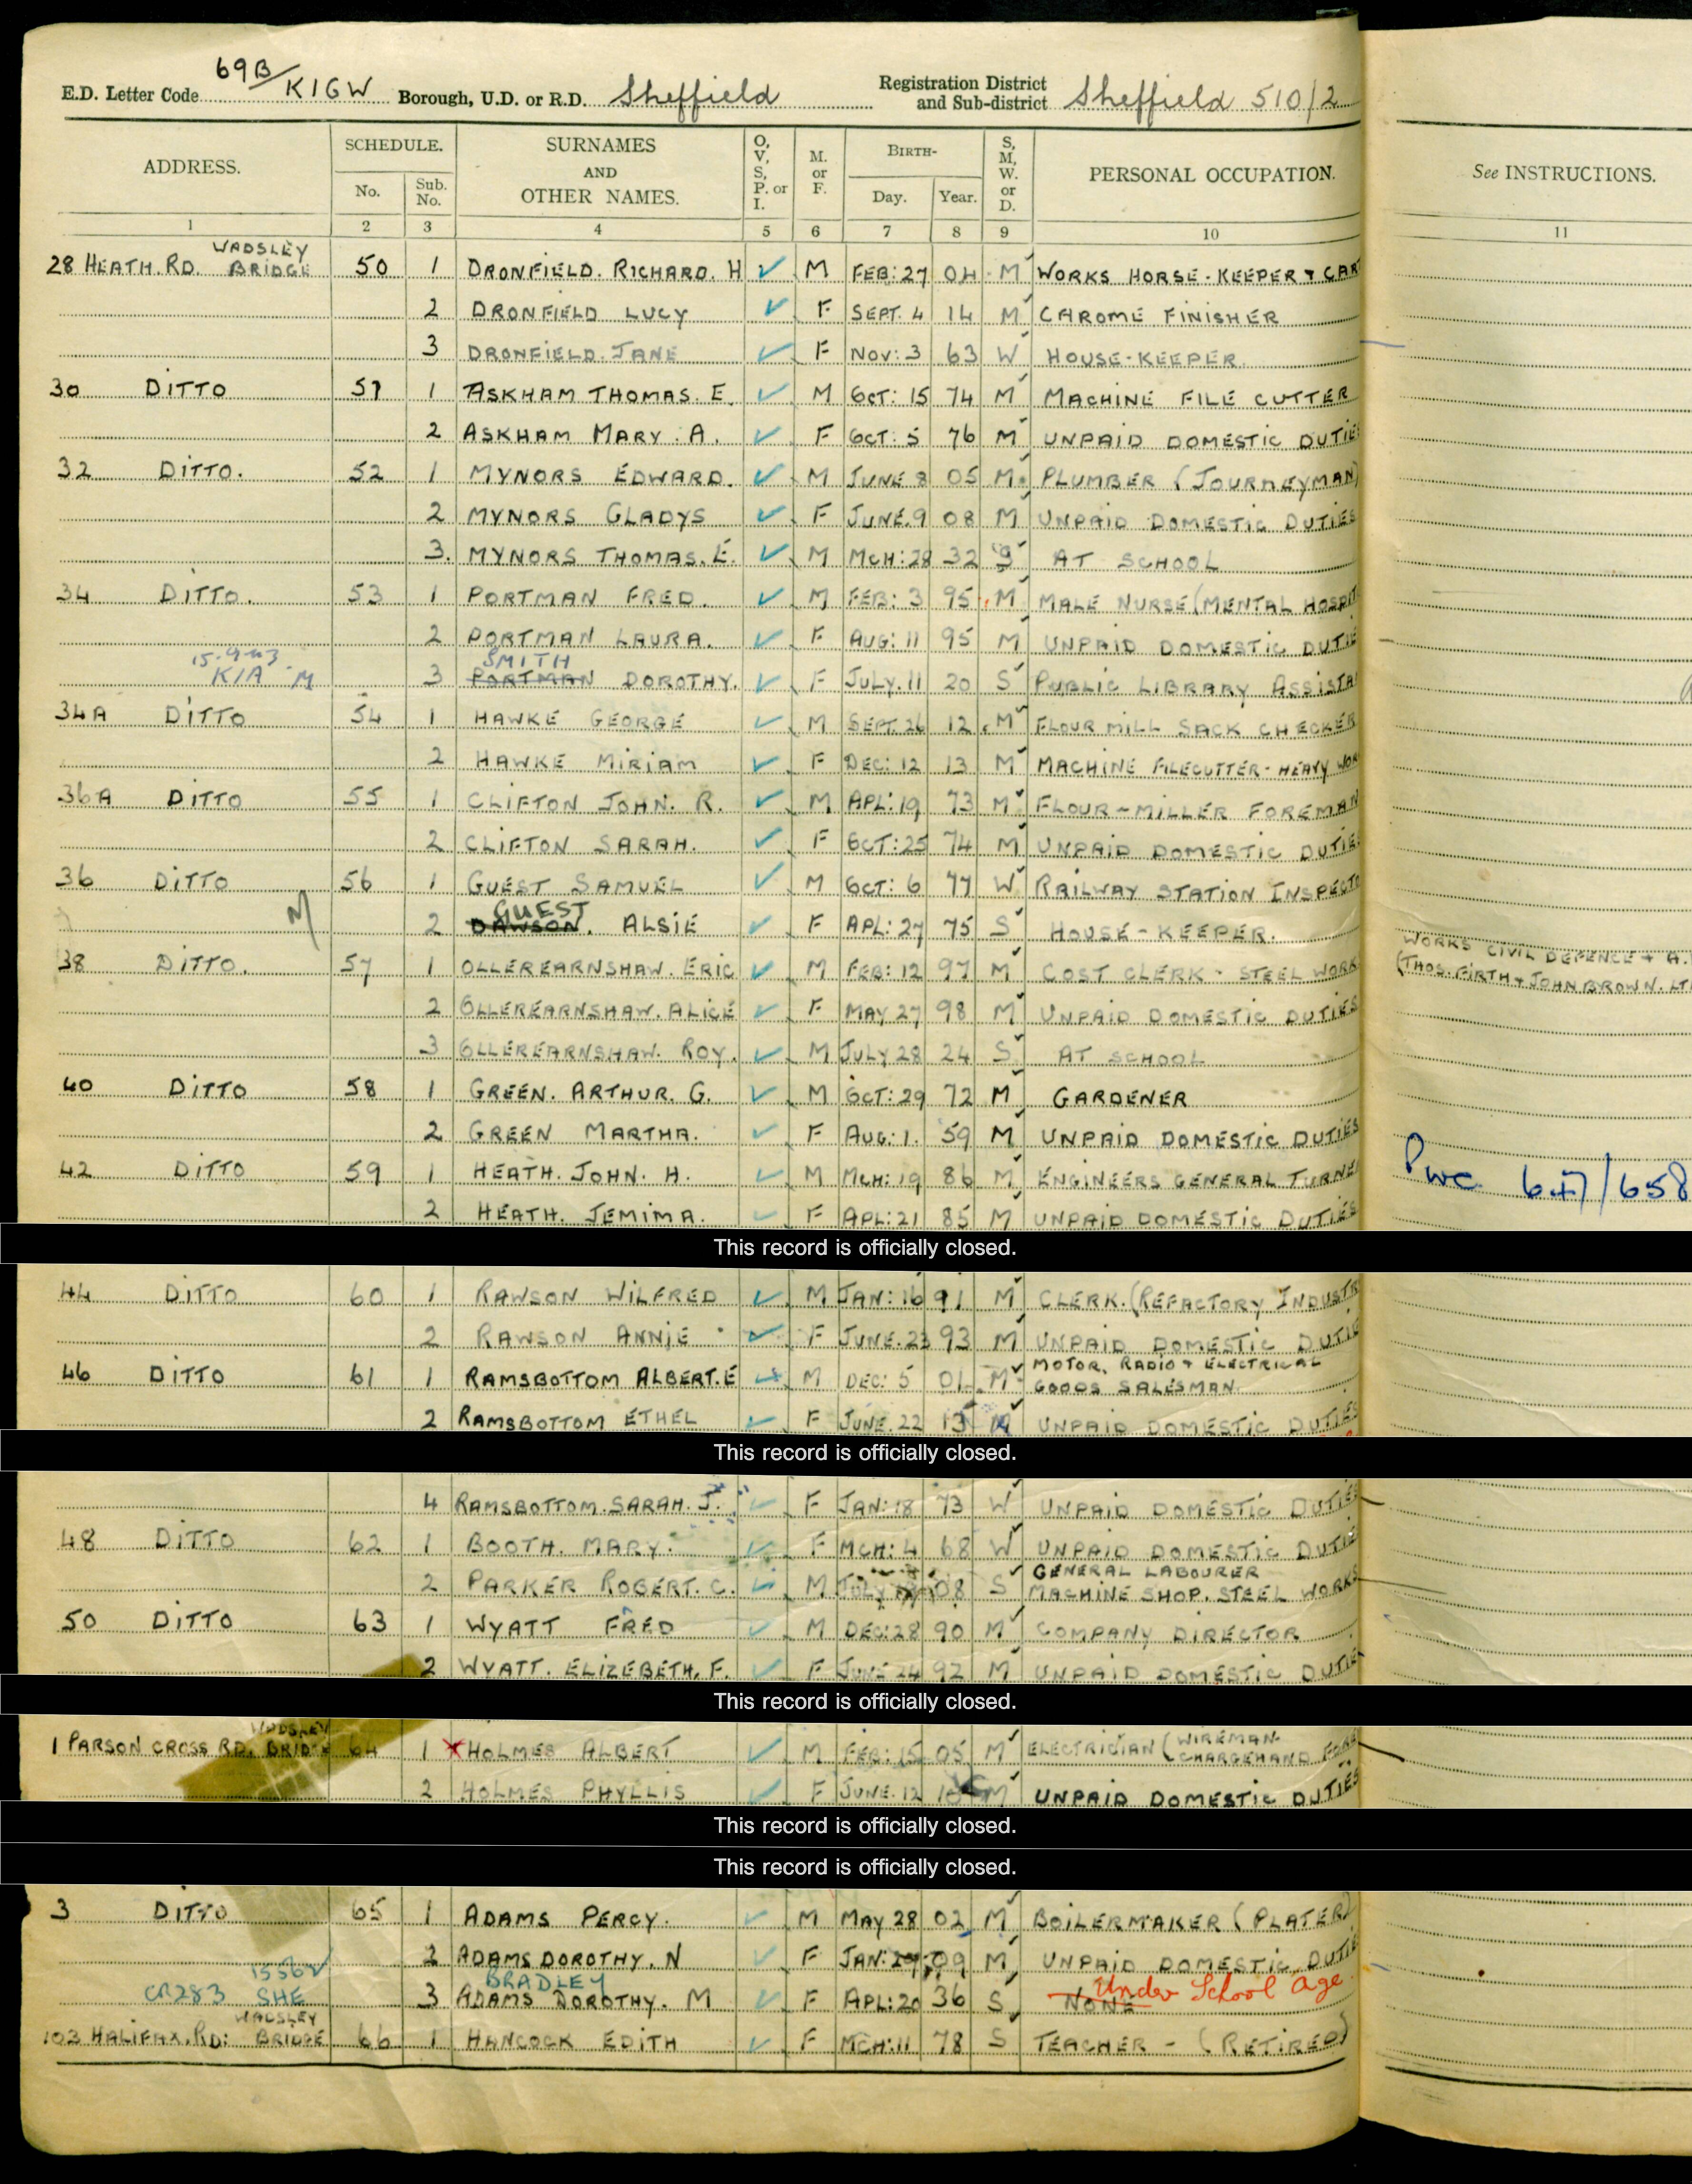 69B/KIGW
E.D. Letter Code Borough, U.D. or R.D. Sheffield Registration District and Sub-district Sheffield 510/2
ADDRESS. SCHEDULE. No. Sub. No. SURNAMES AND OTHER NAMES. O, V, S, P. or I. M. or F. BIRTH- Day. Year. S, M, W. or D. PERSONAL OCCUPATION. See INSTRUCTIONS.
1 2 3 4 5 6 7 8 9 10 11
WADSLEY
28 HEATH. RD. BRIDGE 50 1 DRONFIELD. RICHARD. H ✓ M FEB: 27 04 M WORKS HORSE-KEEPER & CAR
2 DRONFIELD LUCY ✓ F SEPT. 4 14 M CAROME FINISHER
3 DRONFIELD. JANE ✓ F NOV: 3 63 W HOUSE-KEEPER
30 DITTO 51 1 ASKHAM THOMAS. E. ✓ M OCT: 15 74 M MACHINE FILE CUTTER
2 ASKHAM MARY. A. ✓ F OCT: 5 76 M UNPAID DOMESTIC DUTIES
32 DITTO. 52 1 MYNORS EDWARD. ✓ M JUNE 8 05 M PLUMBER (JOURNEYMAN)
2 MYNORS GLADYS ✓ F JUNE. 9 08 M UNPAID DOMESTIC DUTIES
3. MYNORS THOMAS. E. ✓ M MCH: 28 32 S AT SCHOOL
34 DITTO. 53 1 PORTMAN FRED. ✓ M FEB: 3 95 M MALE NURSE (MENTAL HOSPIT
2 PORTMAN LAURA. ✓ F AUG: 11 95 M UNPAID DOMESTIC DUTIE
KIA M SMITH
3 PORTMAN DOROTHY. ✓ F JULY. 11 20 S PUBLIC LIBRARY ASSISTA
34A DITTO 54 1 HAWKE GEORGE ✓ M SEPT. 26 12 M FLOUR MILL SACK CHECKER
2 HAWKE MIRIAM ✓ F DEC: 12 13 M MACHINE FILECUTTER-HEAVY WOR
36A DITTO 55 1 CLIFTON JOHN. R. ✓ M APL: 19 73 M FLOUR-MILLER FOREMAN
2 CLIFTON SARAH. ✓ F OCT: 25 74 M UNPAID DOMESTIC DUTIES
36 DITTO 56 1 GUEST SAMUEL ✓ M OCT: 6 77 W RAILWAY STATION INSPECTO
M GUEST
2 DAWSON. ALSIE ✓ F APL: 27 75 S HOUSE-KEEPER.
38 DITTO. 57 1 OLLEREARNSHAW. ERIC ✓ M FEB: 12 97 M COST CLERK - STEEL WORK WORKS CIVIL DEFENCE + A.
(THOS. FIRTH + JOHN BROWN. LT
2 OLLEREARNSHAW. ALICE ✓ F MAY 27 98 M UNPAID DOMESTIC DUTIES
3 OLLEREARNSHAW. ROY. ✓ M JULY 28 24 S AT SCHOOL
40 DITTO 58 1 GREEN. ARTHUR. G. ✓ M OCT: 29 72 M GARDENER
2 GREEN MARTHA. ✓ F AUG: 1. 59 M UNPAID DOMESTIC DUTIES
42 DITTO 59 1 HEATH. JOHN. H. ✓ M MCH: 19 86 M ENGINEERS GENERAL TURNE
2 HEATH. JEMIMA. ✓ F APL: 21 85 M UNPAID DOMESTIC DUTIES
This record is officially closed.
44 DITTO 60 1 RAWSON WILFRED ✓ M JAN: 16 91 M CLERK. (REFACTORY INDUSTR
2 RAWSON ANNIE ✓ F JUNE. 23 93 M UNPAID DOMESTIC DUTIE
46 DITTO 61 1 RAMSBOTTOM ALBERT. E ✓ M DEC: 5 01 M MOTOR, RADIO + ELECTRICAL
GOODS SALESMAN
2 RAMSBOTTOM ETHEL ✓ F JUNE. 22 13 M UNPAID DOMESTIC DUTIES
This record is officially closed.
4 RAMSBOTTOM. SARAH. J. ✓ F JAN: 18 73 W UNPAID DOMESTIC DUTIE
48 DITTO 62 1 BOOTH. MARY. ✓ F MCH: 4 68 W UNPAID DOMESTIC DUTIE
2 PARKER ROBERT. C. ✓ M JULY 08 S GENERAL LABOURER
MACHINE SHOP. STEEL WORKS
50 DITTO 63 1 WYATT FRED ✓ M DEC: 28 90 M COMPANY DIRECTOR
2 WYATT. ELIZEBETH. F. ✓ F JUNE 24 92 M UNPAID DOMESTIC DUTIE
This record is officially closed.
WADSLEY
1 PARSON CROSS RD. BRIDGE 64 1 X HOLMES ALBERT ✓ M FEB: 15 05 M ELECTRICIAN (WIREMAN
CHARGEHAND
2 HOLMES PHYLLIS ✓ F JUNE. 12 M UNPAID DOMESTIC DUTIES
This record is officially closed.
This record is officially closed.
3 DITTO 65 1 ADAMS PERCY. ✓ M MAY 28 02 M BOILERMAKER (PLATER)
2 ADAMS DOROTHY. N ✓ F JAN: 29 09 M UNPAID DOMESTIC DUTIE
CR283 SHE BRADLEY Under School age
3 ADAMS DOROTHY. M ✓ F APL: 20 36 S NONE
WADSLEY
102 HALIFAX. RD: BRIDGE 66 1 HANCOCK EDITH ✓ F MCH: 11 78 S TEACHER - (RETIRED)